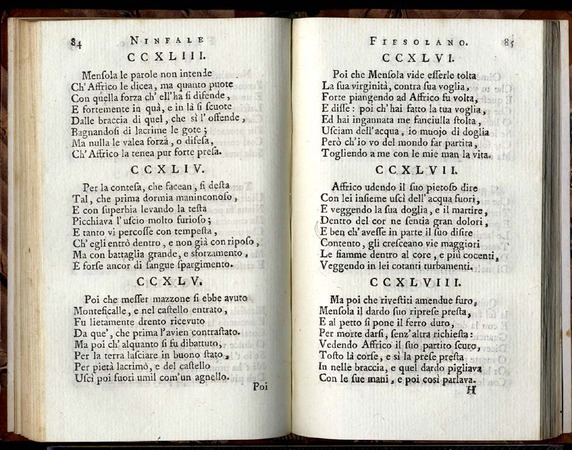 84 NINFALE
CCXLIII.
Mensola le parole non intende
Ch' Affrico le dicea, ma quanto puote
Con quella forza ch' ell' ha si difende,
E fortemente in quà, e in là si scuote
Dalle braccia di quel, che sì l' offende,
Bagnandosi di lacrime le gote;
Ma nulla le valea forza, o difesa,
Ch' Affrico la tenea pur forte presa.
CCXLIV.
Per la contesa, che facean, si desta
Tal, che prima dormia maninconoso,
E con superbia levando la testa
Picchiava l' uscio molto furioso;
E tanto vi percosse con tempesta,
Ch' egli entrò dentro, e non già con riposo,
Ma con battaglia grande, e sforzamento,
E forse ancor di sangue spargimento.
CCXLV.
Poi che messer mazzone si ebbe avuto
Monteficalle, e nel castello entrato,
Fu lietamente dentro ricevuto
Da que', che prima l'avien contrastato.
Ma poi ch' alquanto si fu dibattuto,
Per la terra lasciare in buono stato,
Per pietà lacrimò, e del castello
Uscì poi fuori umil com'un agnello.
Poi
FIESOLANO. 85
CCXLVI.
Poi che Mensola vide esserle tolta
La sua virginità, contra sua voglia,
Forte piangendo ad Affrico fu volta,
E disse: poi c'hai fatto la tua voglia,
Ed hai ingannata me fanciulla stolta,
Usciam dell'acqua, io muojo di doglia
Però ch'io vo del mondo far partita,
Togliendo a me con le mie man la vita.
CCXLVII.
Affrico udendo il suo pietoso dire
Con lei insieme uscì dell'acqua fuori,
E veggendo la sua doglia, e il martire,
Dentro del cor ne sentia gran dolori,
E ben ch'avesse in parte il suo disire
Contento, gli cresceano vie maggiori
Le fiamme dentro al core, e più cocenti,
Veggendo in lei cotanti turbamenti.
CCXLVIII.
Ma poi che rivestiti amendue furo,
Mensola il dardo suo riprese presta,
E al petto si pone il ferro duro,
Per morte darsi, senz'altra richiesta:
Vedendo Affrico il suo partito scuro,
Tosto là corse, e sì la prese presta
In nelle braccia, e quel dardo pigliava
Con le sue mani, e poi così parlava.
H